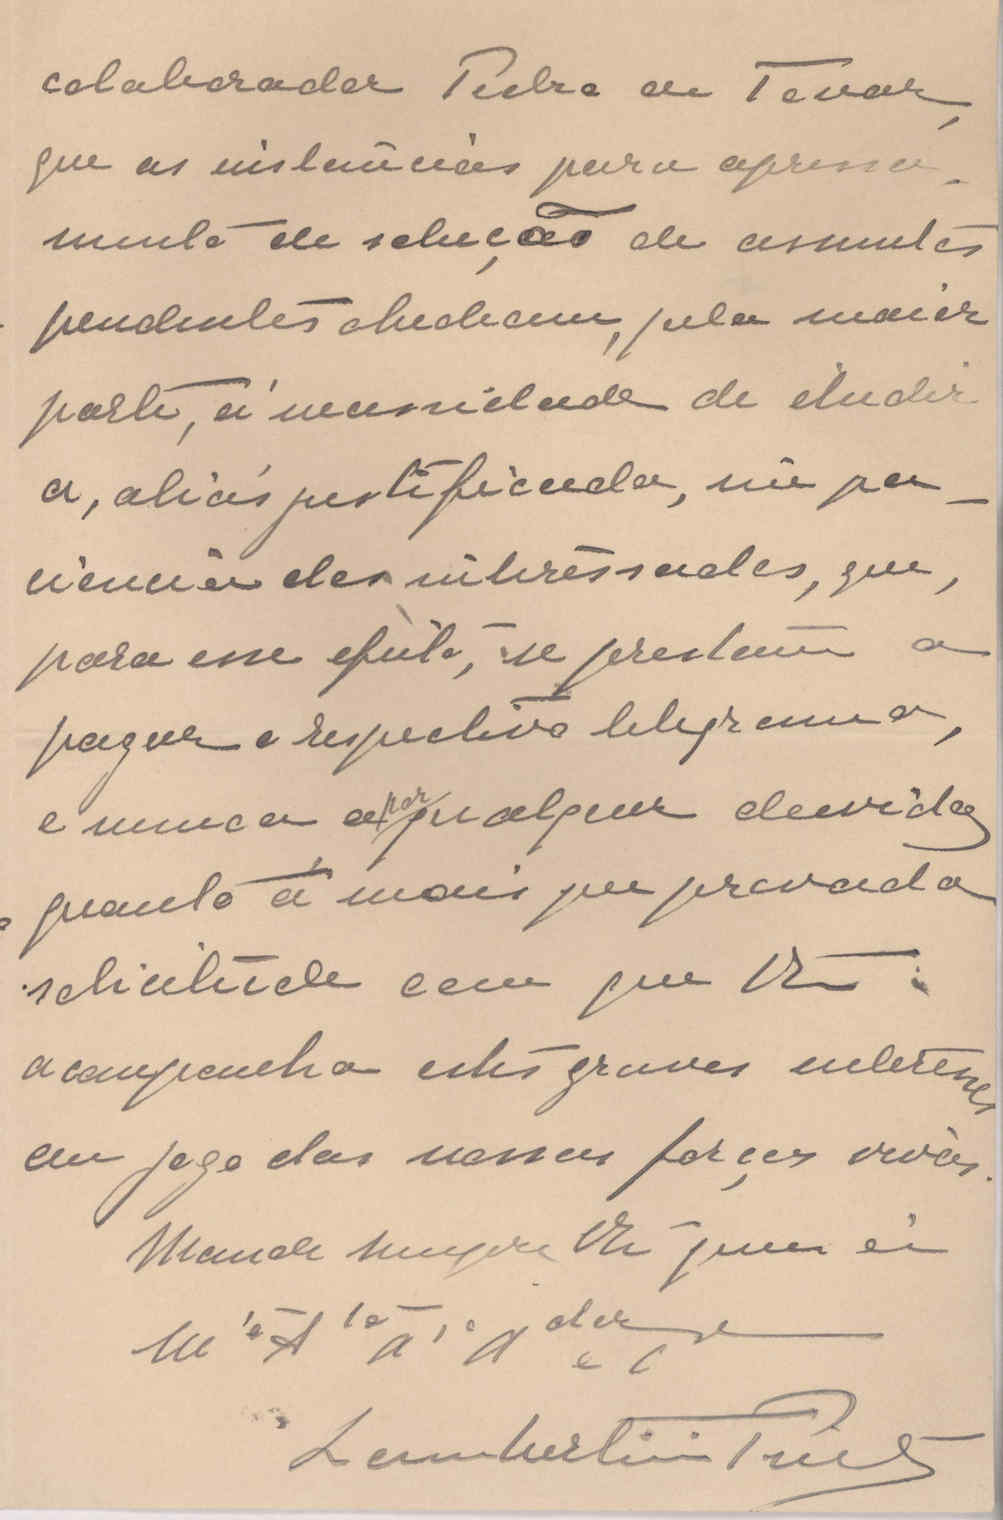 colaborador Pedro de Tovar,
que as instancias para apressa-
mento de solução de assumtos
pendentes obedecem, pela maior
parte, á necessidade de iludir
a, aliás justificada, impa-
ciencia dos interessados, que,
para esse efeito, se prestam a
pagar o respectivo telegrama,
e nunca a por qualquer duvida
quanto á mais que provada
solicitude com que V.
acompanha estes graves interesses
em jogo das nossas forças vivas.
Mande sempre V. quem é
M.to A.to
Lambertini Pinto